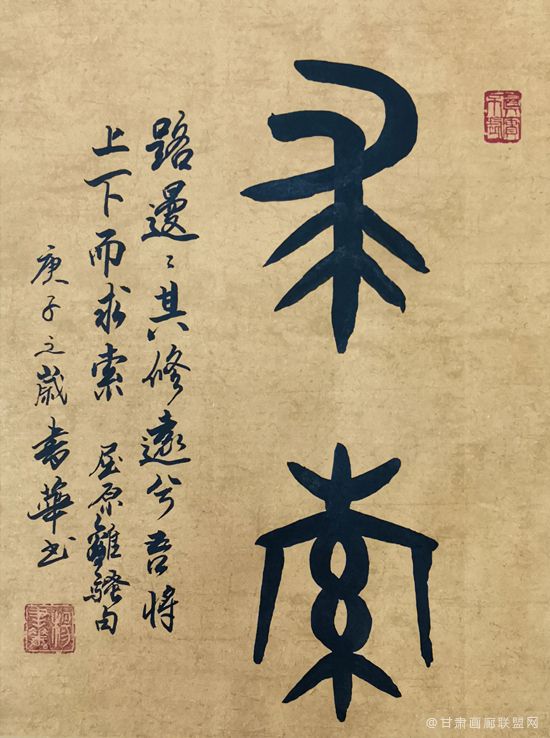 求索
路漫々其修遠兮吾將
上下而求索 屈原離騷句
庚子之歲書華书
@甘肃画廊联盟网